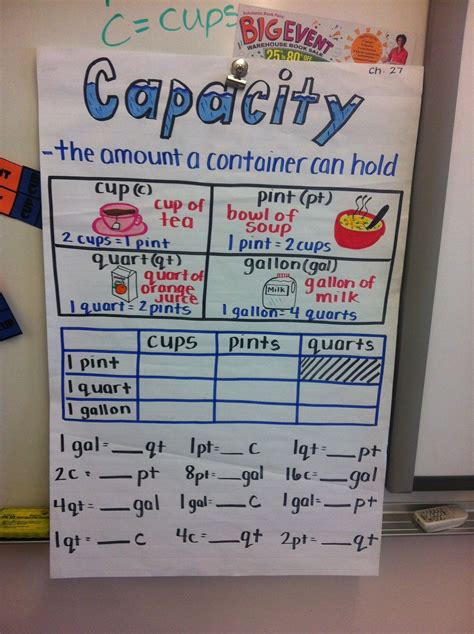 C = cups
BIG EVENT
WAREHOUSE BOOK SALE
25 to 80% OFF
Ch. 27
Capacity
-the amount a container can hold
cup (c)
cup of
tea
2 cups = 1 pint
pint (pt)
bowl of
soup
1 pint = 2 cups
quart (qt)
quart of
orange
juice
1 quart = 2 pints
gallon (gal)
gallon of
milk
Milk
1 gallon = 4 quarts
cups pints quarts
1 pint
1 quart
1 gallon
1 gal = __ qt 1pt = __ c 1qt = __ pt
2c = __ pt 8pt = __ gal 16c = __ gal
4qt = __ gal 1 gal = __ c 1 gal = __ pt
1qt = __ c 4c = __ qt 2pt = __ qt